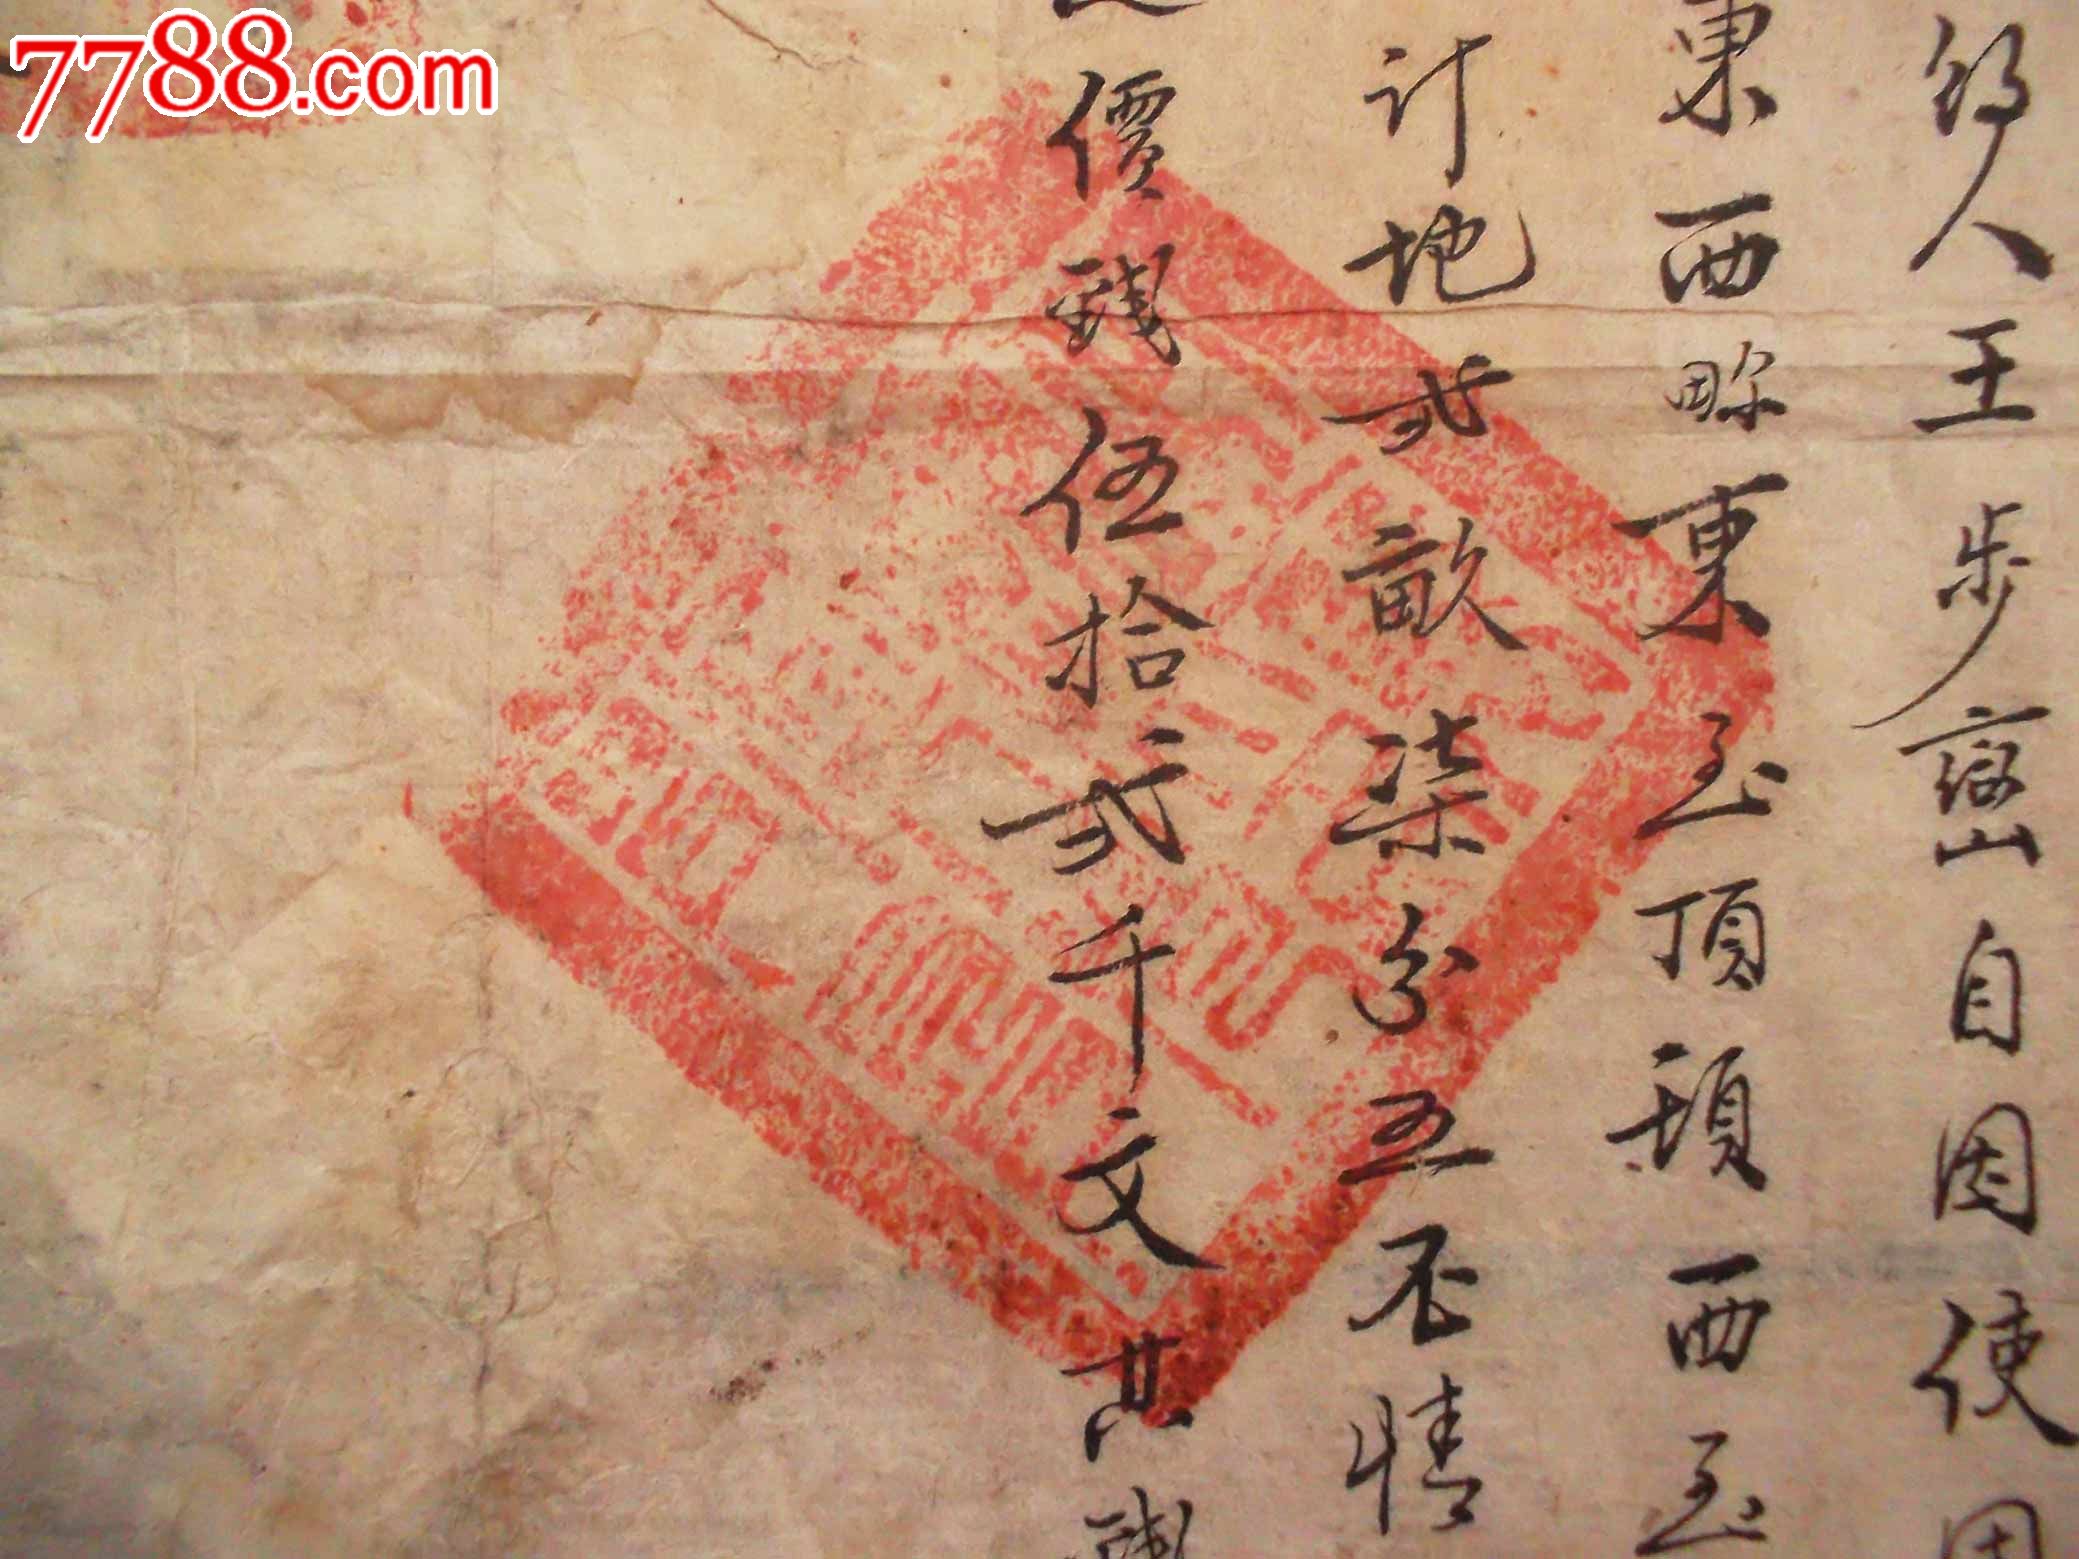 7788.com
約人王步密自因使因
東西畛東至頂頭西至
计地弍畝柒分五不情
價錢伍拾弍千文其錢